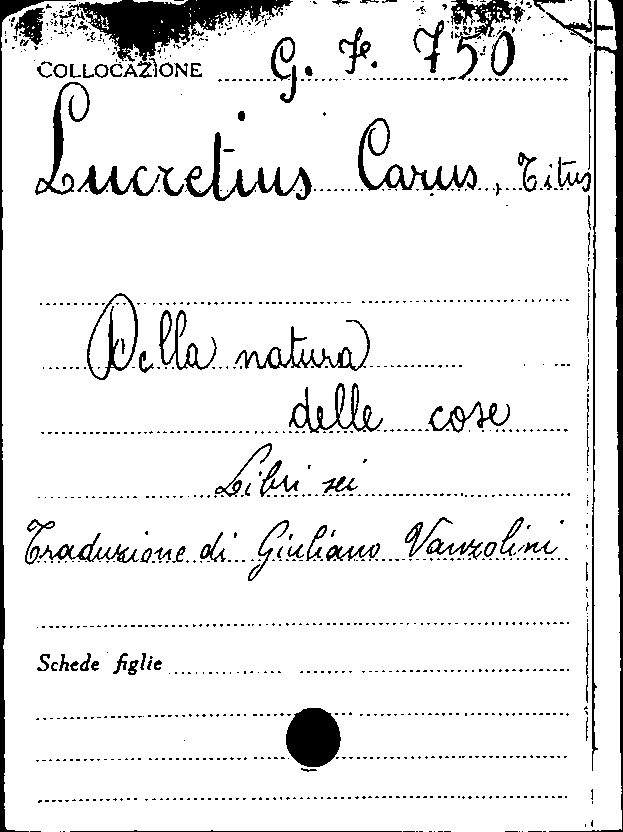 COLLOCAZIONE G. F. 750
Lucretius Carus, Titus
Della natura
delle cose
Libri sei
Traduzione di Giuliano Vanzolini
Schede figlie